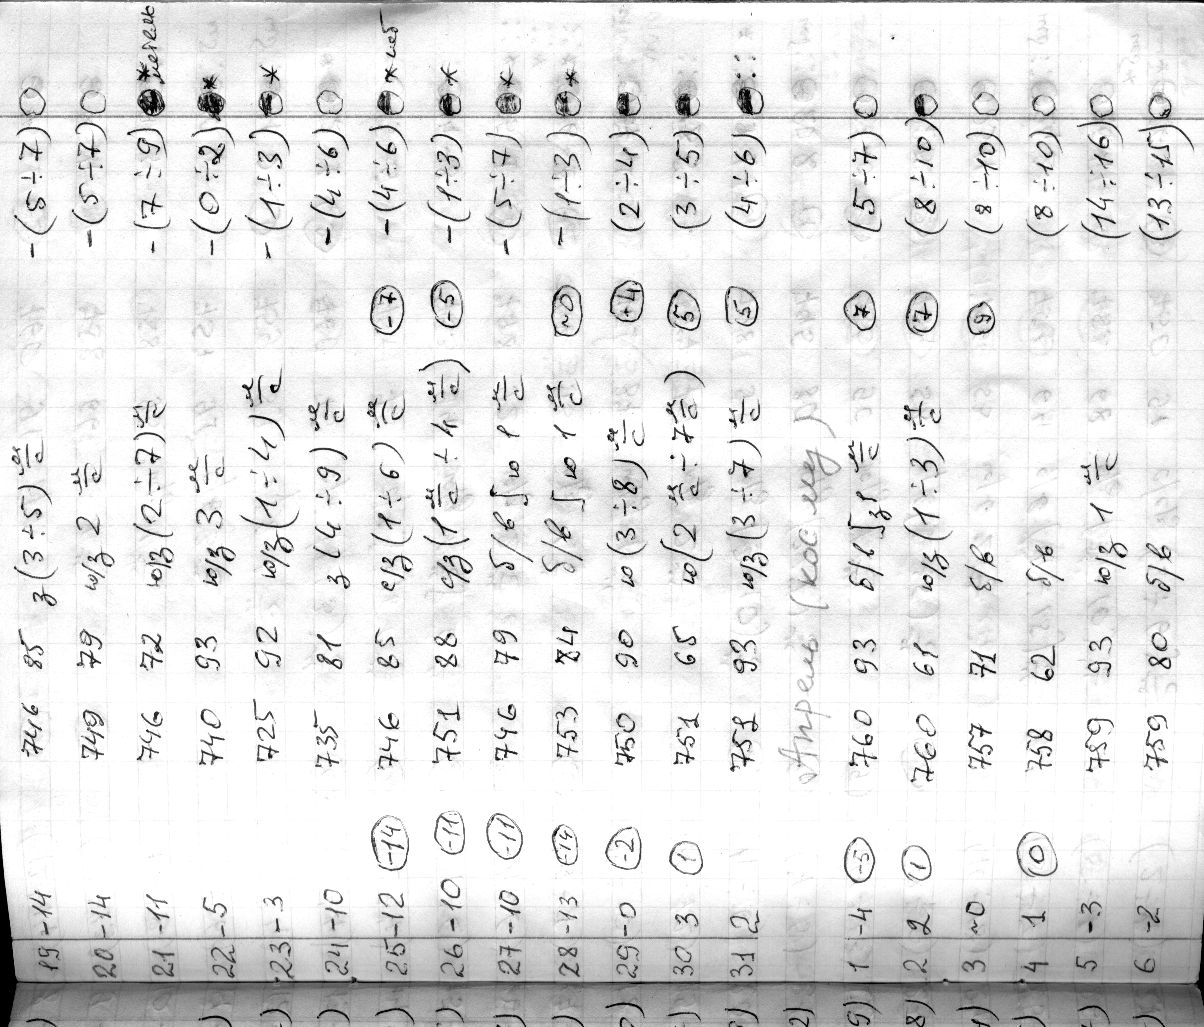 19 -14 746 85 з (3÷5) м/с -(5÷7)
20 -14 749 79 ю/з 2 м/с -(5÷7)
21 -11 746 72 ю/з (2÷7) м/с -(7÷9) * метель
22 -5 740 93 ю/з 3 м/с -(0÷2) *
23 -3 725 92 ю/з (1÷4) м/с -(1÷3) *
24 -10 735 81 з (4÷9) м/с -(4÷6)
25 -12 -14 746 85 с/з (1÷6) м/с -7 -(4÷6) *
26 -10 -11 751 88 с/з (1 м/с ÷ 4 м/с) -5 -(1÷3) *
27 -10 -11 746 79 б/в ю 1 м/с -(5÷7) *
28 -13 -14 753 84 б/в ю 1 м/с ~0 -(1÷3) *
29 -0 -2 750 90 ю (3÷8) м/с +4 (2÷4)
30 3 1 751 65 ю (2 м/с ÷ 7 м/с) 5 (3÷5)
31 2 752 93 ю/з (3÷7) м/с 5 (4÷6) :::
Апрель (
1 -4 -5 760 93 б/в з 1 м/с 7 (5÷7)
2 2 1 760 61 ю/з (1÷3) м/с 7 (8÷10)
3 ~0 757 71 б/в 9 (8÷10)
4 1 0 758 62 б/в (8÷10)
5 -3 759 93 ю/з 1 м/с (14÷16)
6 -2 759 80 б/в (13÷15)